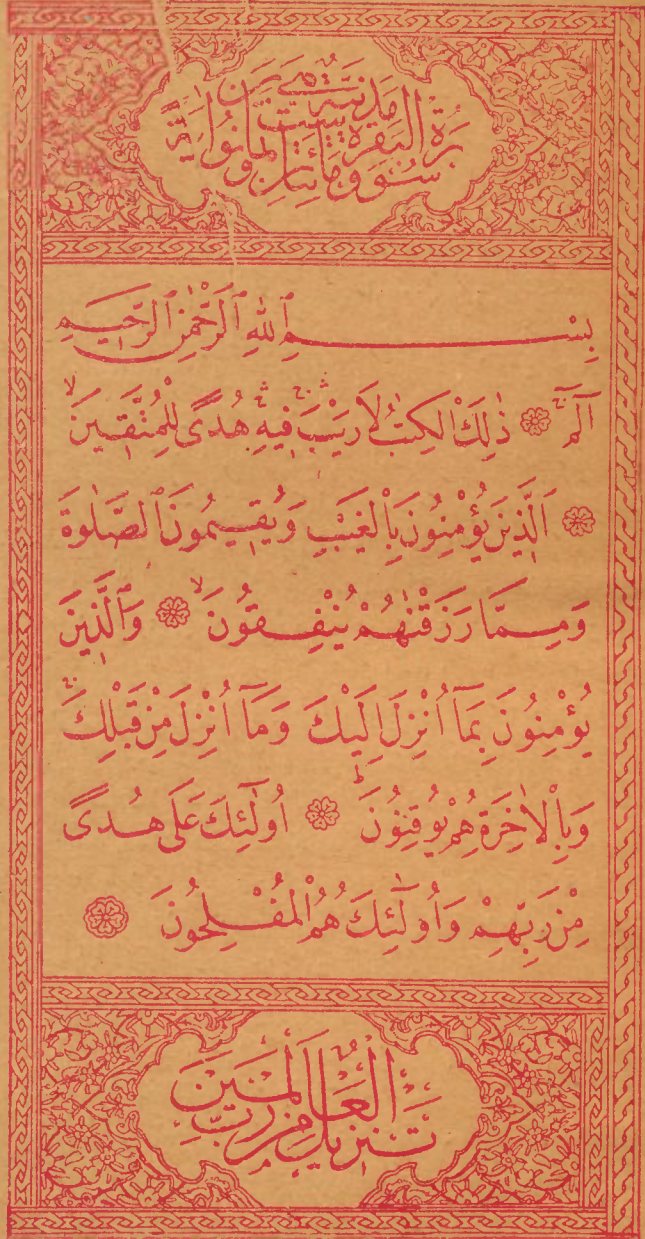 سورة البقرة مدنية وهي مائتان وست وثمانون آية
بِسْمِ ٱللّٰهِ ٱلرَّحْمٰنِ ٱلرَّحٖيمِ
الٓمٓ ۞ ذٰلِكَ الْكِتَابُ لَا رَيْبَ فٖيهِ هُدًى لِلْمُتَّقٖينَ
۞ اَلَّذٖينَ يُؤْمِنُونَ بِالْغَيْبِ وَيُقٖيمُونَ الصَّلٰوةَ
وَمِمَّا رَزَقْنٰهُمْ يُنْفِقُونَ ۞ وَالَّذٖينَ
يُؤْمِنُونَ بِمَٓا اُنْزِلَ اِلَيْكَ وَمَٓا اُنْزِلَ مِنْ قَبْلِكَ
وَبِالْاٰخِرَةِ هُمْ يُوقِنُونَ ۞ اُولٰٓئِكَ عَلٰى هُدًى
مِنْ رَبِّهِمْ وَاُولٰٓئِكَ هُمُ الْمُفْلِحُونَ ۞
تَنْزٖيلٌ مِنْ رَبِّ الْعَالَمٖينَ